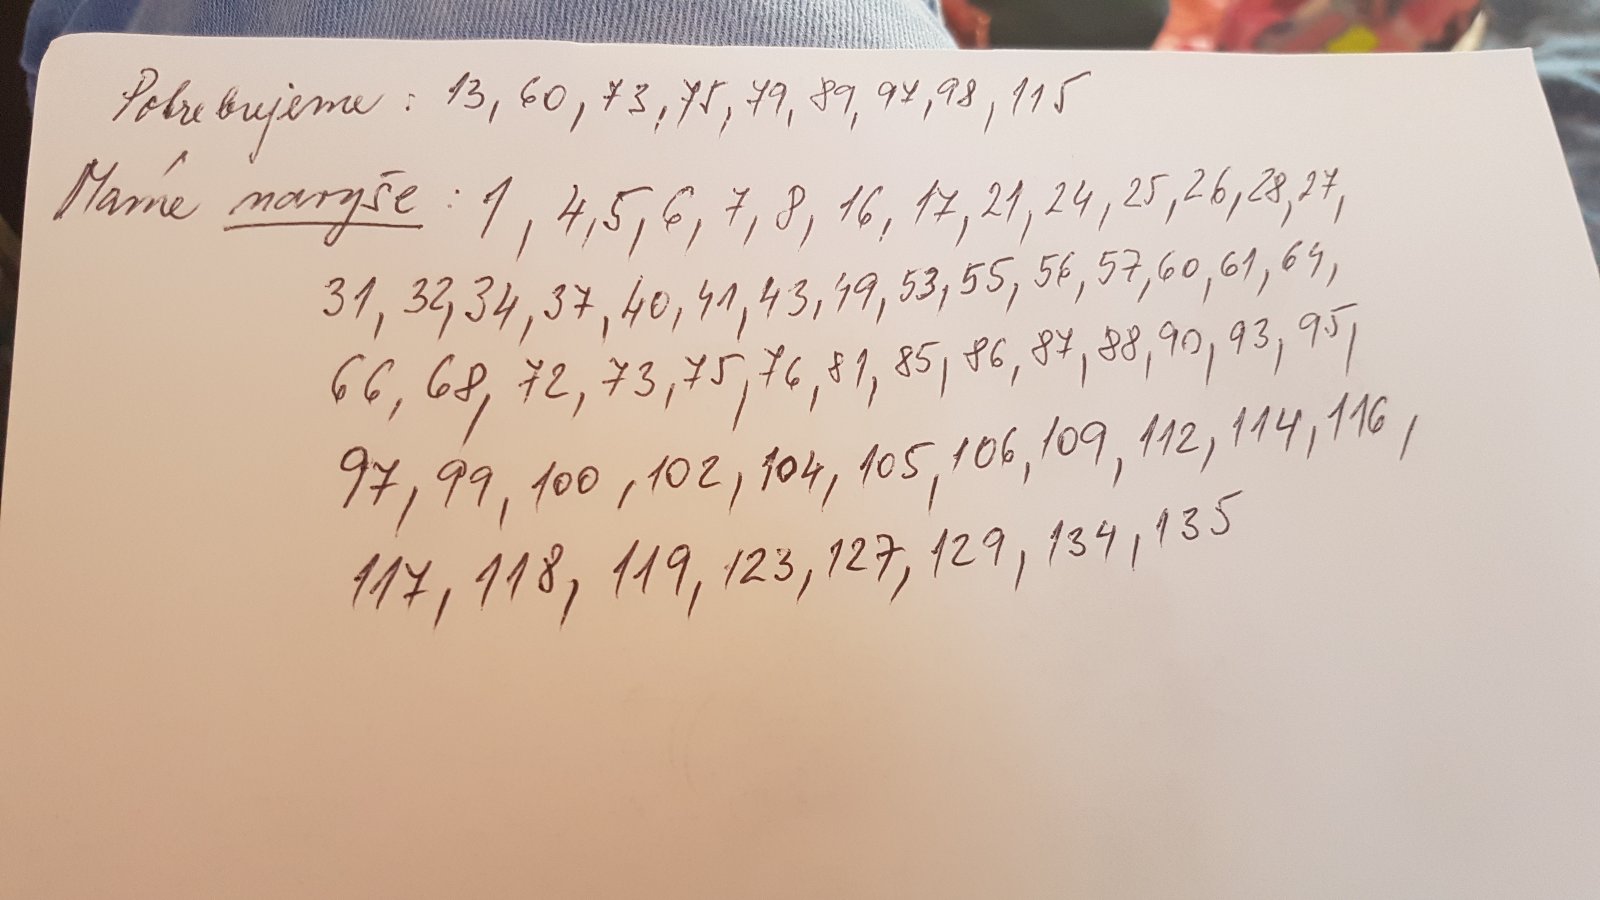 Potrebujeme : 13, 60, 73, 75, 79, 89, 97, 98, 115
Máme navyše : 1, 4, 5, 6, 7, 8, 16, 17, 21, 24, 25, 26, 28, 27,
31, 32, 34, 37, 40, 41, 43, 49, 53, 55, 56, 57, 60, 61, 64,
66, 68, 72, 73, 75, 76, 81, 85, 86, 87, 88, 90, 93, 95,
97, 99, 100, 102, 104, 105, 106, 109, 112, 114, 116,
117, 118, 119, 123, 127, 129, 134, 135